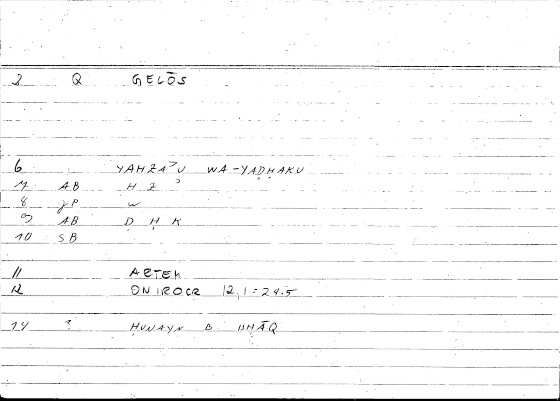 2 Q GELŌS
6 YAHZAʾU WA-YAḌḤAKU
7 AB H Z ʾ
8 JP W
9 AB Ḍ Ḥ K
10 SB
11 ARTEM
12 ONIROCR 12,1 = 24.5
14 ? ḤUNAYN B ISḤĀQ